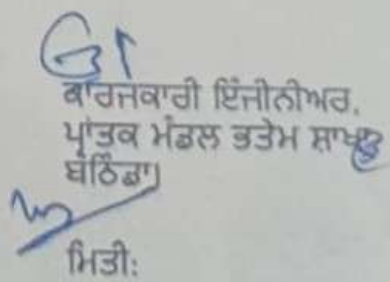 ਕਾਰਜਕਾਰੀ ਇੰਜੀਨੀਅਰ,
ਪ੍ਰਾਂਤਕ ਮੰਡਲ ਭਤੇਮ ਸ਼ਾਖਾ
ਬਠਿੰਡਾ।
ਮਿਤੀ: